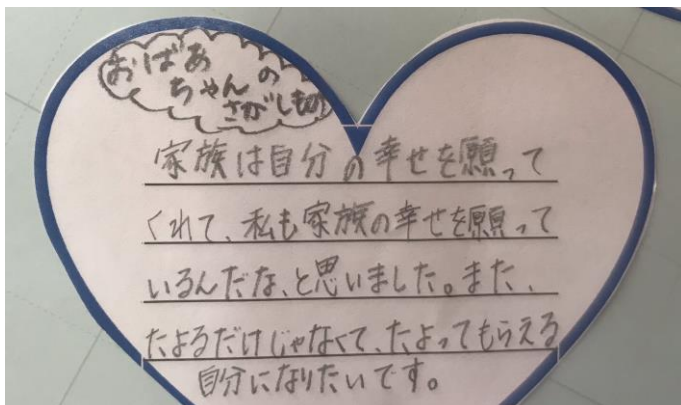 おばあ
ちゃんの
さがしもの
家族は自分の幸せを願って
くれて、私も家族の幸せを願って
いるんだな、と思いました。また、
たよるだけじゃなくて、たよってもらえる
自分になりたいです。